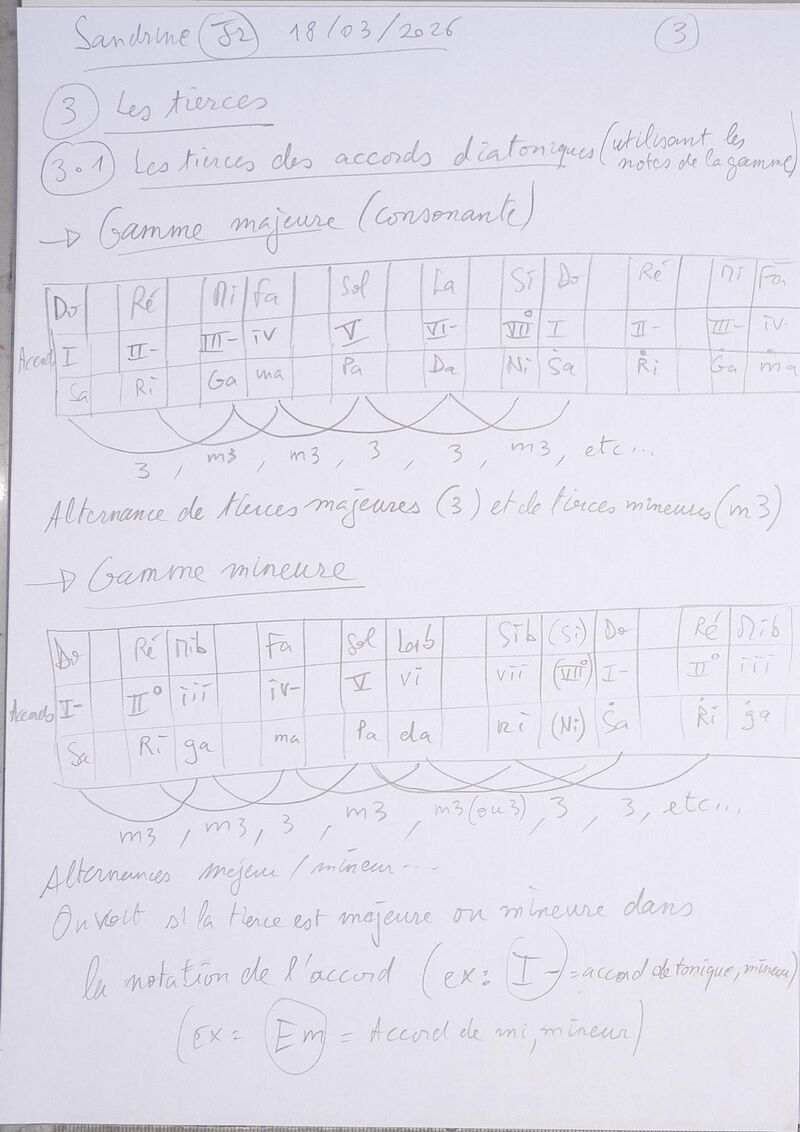 Sandrine 18/03/2026 3
3 Les tierces
3.1 Les tierces des accords diatoniques (utilisant les
notes de la gamme)
→ Gamme majeure (consonante)
Do Ré Mi Fa Sol La Si Do Ré Mi Fa
Accord I II- III- IV V VI- VII° I II- III- IV
Sa Ri Ga ma Pa Da Ni Sa Ṙi Ġa ṁa
3, m3, m3, 3, 3, m3, etc...
Alternance de tierces majeures (3) et de tierces mineures (m3)
→ Gamme mineure
Do Ré Mib Fa Sol Lab Sib (Si) Do Ré Mib
Accords I- II° iii iv- V vi vii (VII°) I- II° iii
Sa Ri ga ma Pa da ni (Ni) Ṡa Ṙi ġa
m3, m3, 3, m3, m3 (ou 3), 3, 3, etc...
Alternances majeur/mineur...
On voit si la tierce est majeure ou mineure dans
la notation de l'accord (ex: I- = accord de tonique, mineur)
(Ex = Em = Accord de mi, mineur)